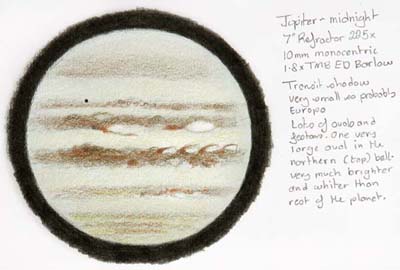 Jupiter - midnight
7" Refractor 205x
10mm monocentric
1.8x TMB ED Barlow
Transit shadow
very small so probably
Europa
Lots of ovals and
festoons. One very
large oval in the
northern (top) belt.
very much brighter
and whiter than
rest of the planet.